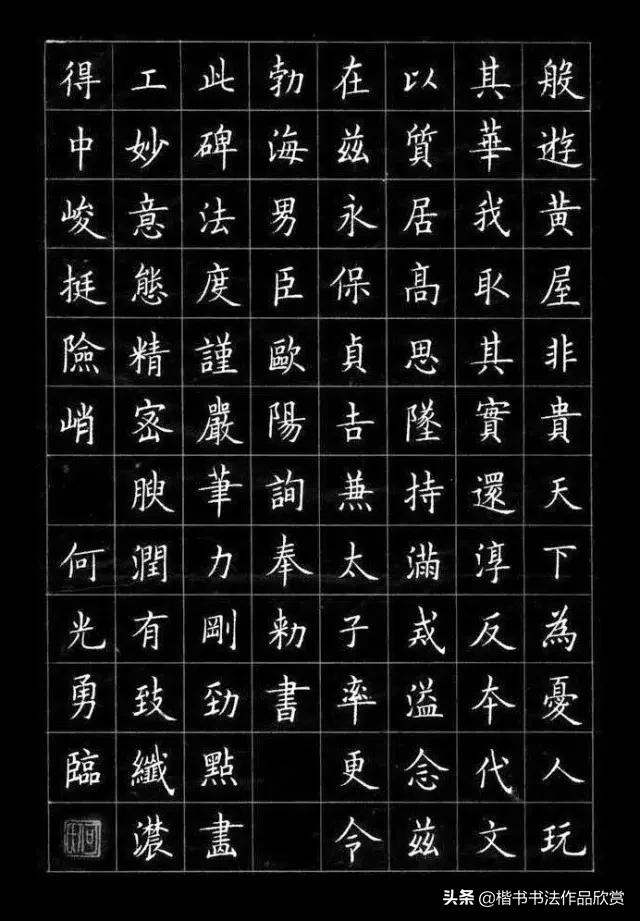 般遊黃屋非貴天下為憂人玩
其華我取其實還淳反本代文
以質居高思墜持滿戒溢念茲
在茲永保貞吉兼太子率更令
勃海男臣歐陽詢奉勅書
此碑法度謹嚴筆力剛勁點畫
工妙意態精密腴潤有致纖濃
得中峻挺險峭 何光勇臨
头条 @楷书书法作品欣赏